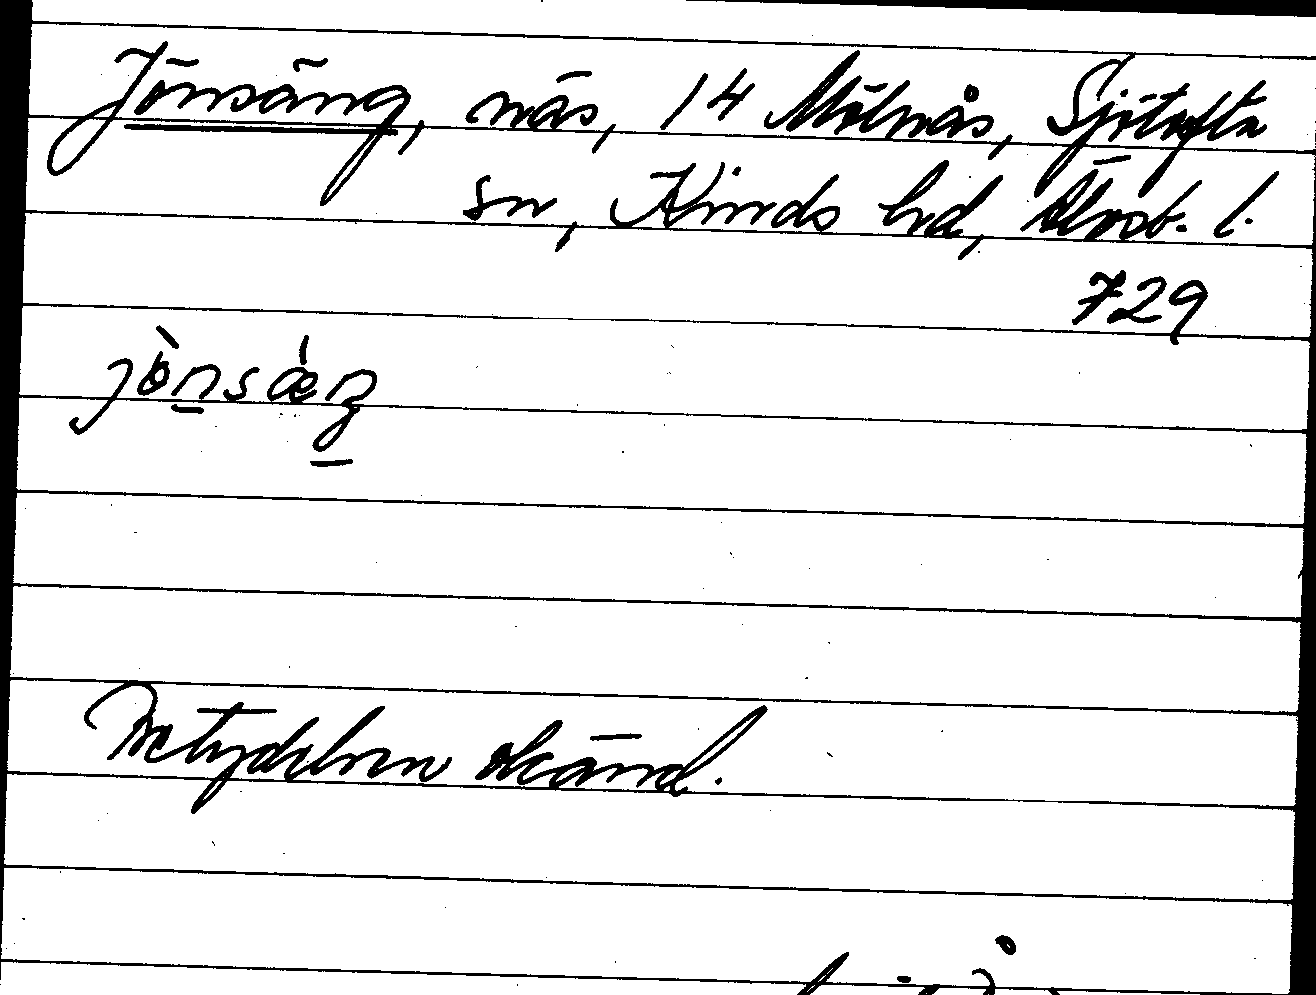 Jönsäng, näs, 14 Mölnås, Sjötofta
sn, Kinds hd, Älvsb. l.
729
jö̀nsǽŋ
Betydelsen okänd.